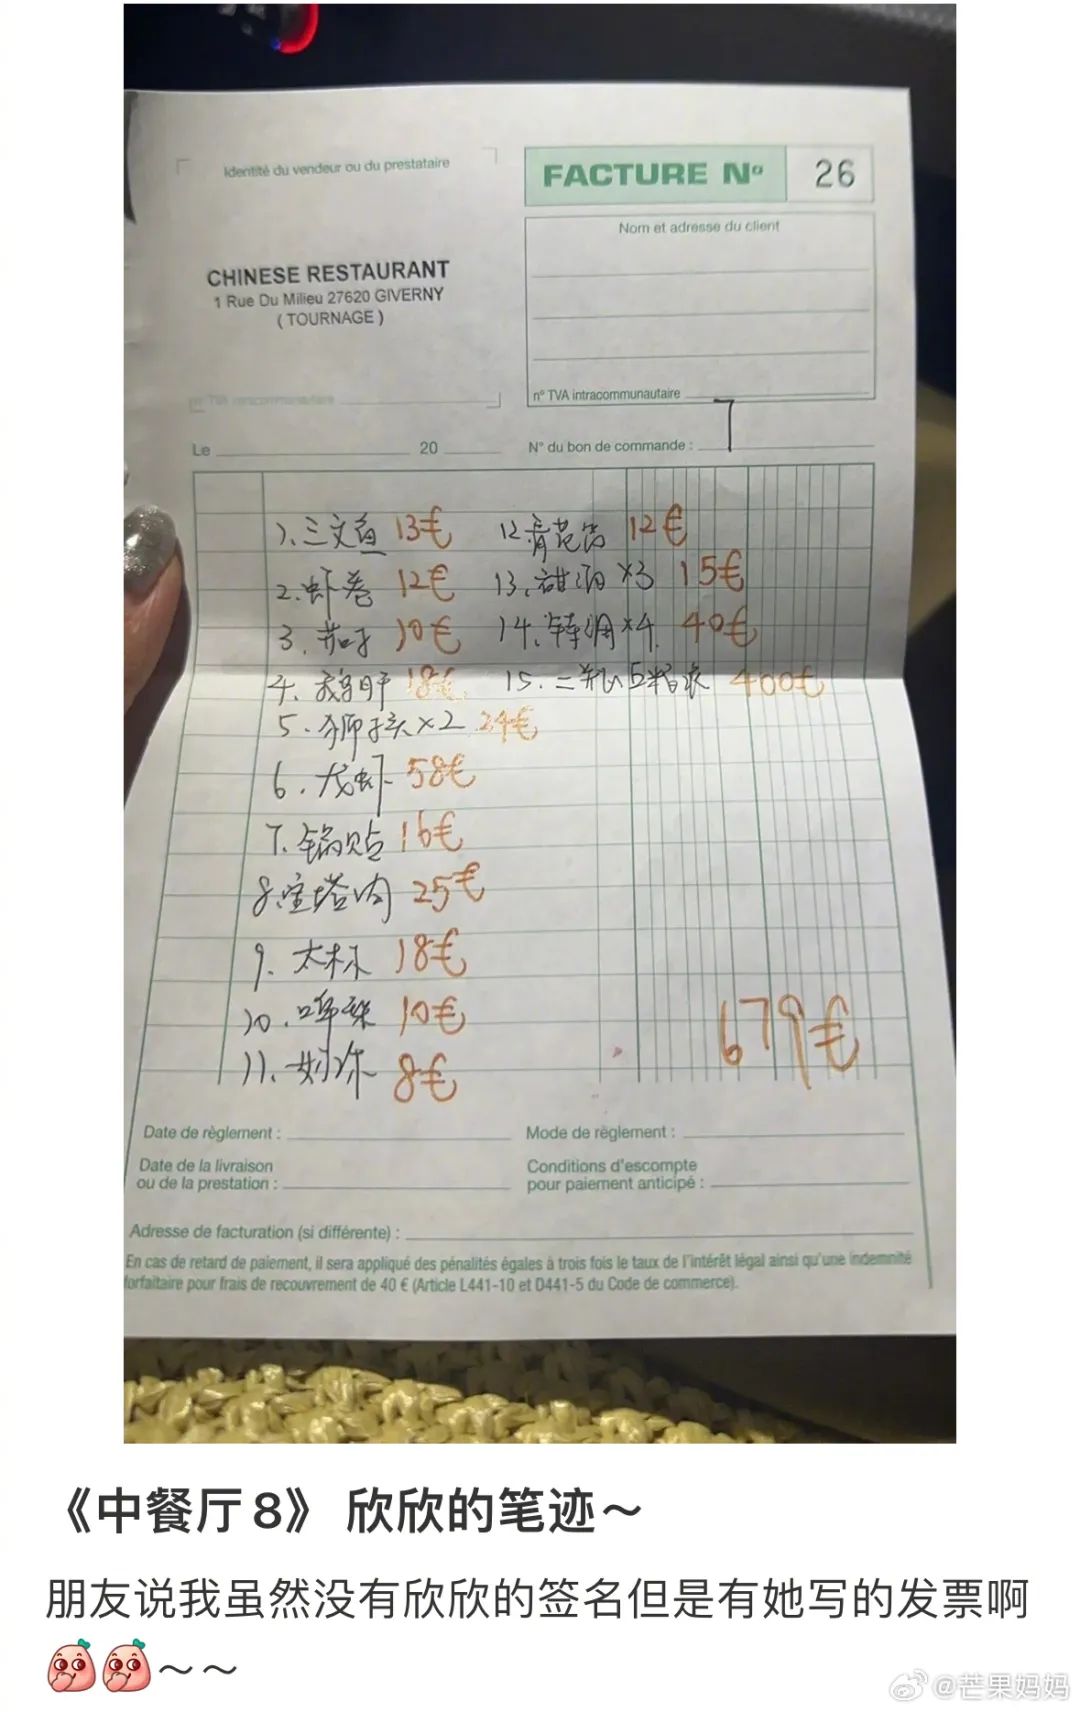 Identité du vendeur ou du prestataire
FACTURE Nº 26
Nom et adresse du client
CHINESE RESTAURANT
1 Rue Du Milieu 27620 GIVERNY
( TOURNAGE )
n° TVA intracommunautaire
n° TVA intracommunautaire
Le 20
N° du bon de commande : 7
1、三文鱼 13€
2.虾卷 12€
3. 茄子 10€
4、鹅肝 18€
5.狮子头×2 24€
6.龙虾 58€
7.锅贴 16€
8.宝塔肉 25€
9. 18€
10. 10€
11. 8€
12 青花 12€
13. 甜酒×3 15€
14. ×4 40€
15.二瓶五粮液 400€
679€
Date de règlement :
Mode de règlement :
Date de la livraison
ou de la prestation :
Conditions d'escompte
pour paiement anticipé :
Adresse de facturation (si différente) :
En cas de retard de paiement, il sera appliqué des pénalités égales à trois fois le taux de l'intérêt légal ainsi qu'une indemnité
forfaitaire pour frais de recouvrement de 40 € (Article L441-10 et D441-5 du Code de commerce).
《中餐厅8》 欣欣的笔迹～
朋友说我虽然没有欣欣的签名但是有她写的发票啊
～～
@芒果妈妈